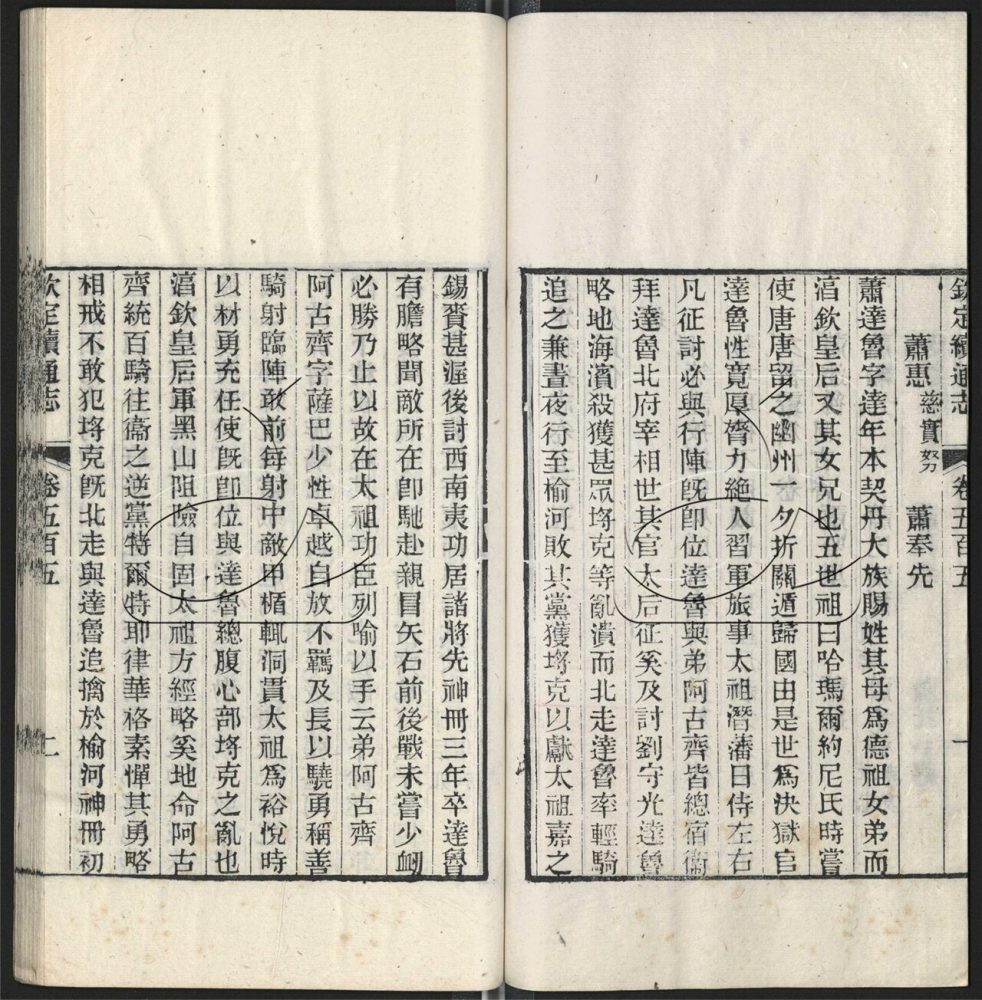 欽定續通志 卷五百五 一
蕭惠 慈實努 蕭奉先
蕭達魯字達年本契丹大族賜姓其母爲德祖女弟而
淳欽皇后又其女兄也五世祖曰哈瑪爾約尼氏時嘗
使唐唐留之幽州一夕折關遁歸國由是世爲決獄官
達魯性寬厚膂力絶人習軍旅事太祖潛藩日侍左右
凡征討必與行陣旣卽位達魯與弟阿古齊皆總宿衞
拜達魯北府宰相世其官太后征奚及討劉守光達魯
略地海濱殺獲甚眾垺克等亂潰而北走達魯率輕騎
追之兼晝夜行至榆河敗其黨獲垺克以獻太祖嘉之
錫賚甚渥後討西南夷功居諸將先神冊三年卒達魯
有膽略聞敵所在卽馳赴親冒矢石前後戰未嘗少衄
必勝乃止以故在太祖功臣列喻以手云弟阿古齊
阿古齊字薩巴少性卓越自放不羈及長以驍勇稱善
騎射臨陣敢前每射中敵甲楯輒洞貫太祖爲裕悅時
以材勇充任使旣卽位與達魯總腹心部垺克之亂也
淳欽皇后軍黑山阻險自固太祖方經略奚地命阿古
齊統百騎往衞之逆黨特爾特耶律華格素憚其勇略
相戒不敢犯垺克旣北走與達魯追擒於榆河神冊初
欽定續通志 卷五百五 二